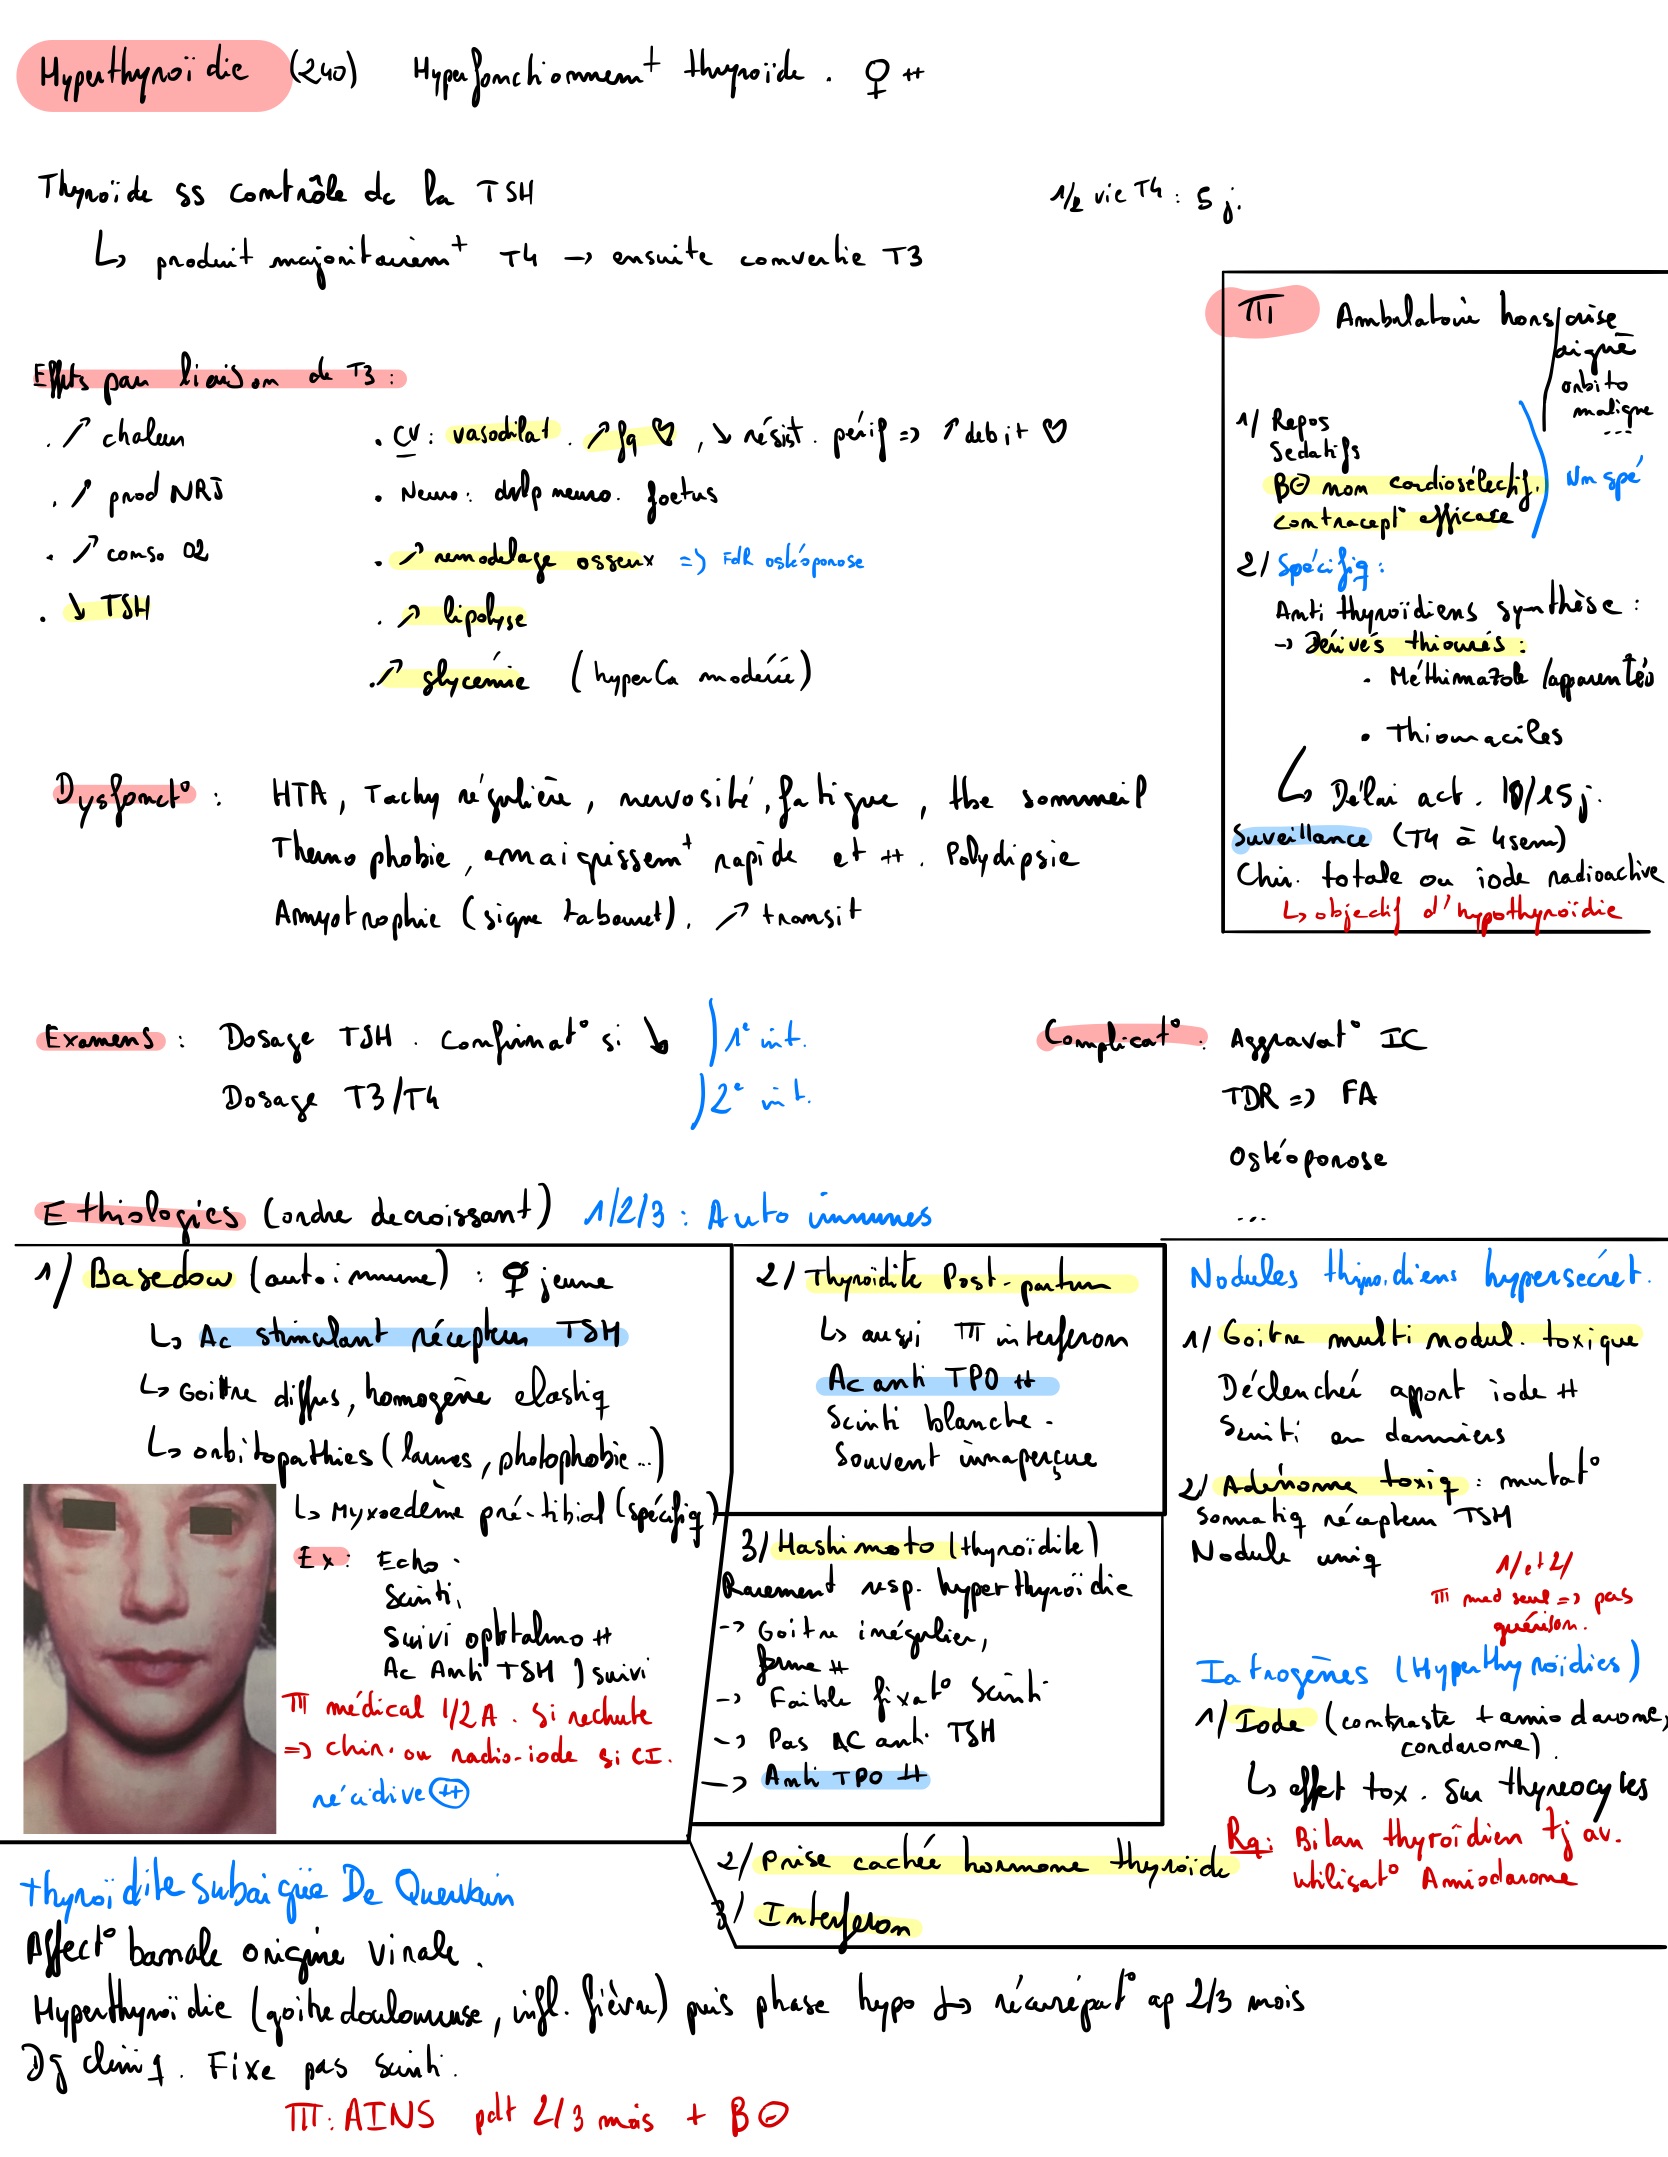 Hyperthyroïdie (240) Hyperfonctionnem^t thyroïde. ♀ ++
Thyroïde ss contrôle de la TSH
↳ produit majoritairem^t T4 → ensuite convertie T3
1/2 vie T4 : 5 j.
Effets par liaison de T3 :
. ↗ chaleur
. ↗ prod NRJ
. ↗ conso O2
. ↘ TSH
• CV : vasodilat. ↗ fq ♡, ↘ résist. périf => ↑ debit ♡
• Neuro : dvlp neuro. foetus
• ↗ remodelage osseux => FdR ostéoporose
. ↗ lipolyse
. ↗ glycémie (hyperCa modérée)
TTT Ambulatoire hors crise
aiguë
orbito
maligne
...
1/ Repos
Sedatifs
B⊖ non cardiosélectif.
contracept° efficace
Nn spé
2/ Spécifiq :
Anti thyroïdiens synthèse :
→ Dérivés thiourés :
• Méthimazole /apparentés
• Thiouraciles
↳ Délai act. 10/15 j.
Suveillance (T4 à 4 sem)
Chir. totale ou iode radioactive
↳ objectif d'hypothyroïdie
Dysfonct° : HTA, Tachy régulière, nervosité, fatigue, tbe sommeil
Thermophobie, amaigrissem^t rapide et ++. Polydipsie
Amyotrophie (signe tabouret). ↗ transit
Examens : Dosage TSH. Confirmat° si ↘ ) 1e int.
Dosage T3/T4 ) 2e int.
Complicat° : Aggravat° IC
TDR => FA
Ostéoporose
...
Ethiologies (ordre decroissant) 1/2/3 : Auto immunes
1/ Basedow (autoimmune) : ♀ jeune
↳ Ac stimulant récepteur TSH
↳ Goitre diffus, homogène elastiq
↳ orbitopathies (larmes, photophobie...)
↳ Myxoedème pré-tibial (spécifiq)
Ex : Echo.
Scinti,
Suivi ophtalmo ++
Ac Anti TSH ) suivi
TTT médical 1/2 A. Si rechute
=> chir. ou radio-iode si CI.
récidive ++
2/ Thyroïdite Post-partum
↳ aussi TTT interferon
Ac anti TPO ++
Scinti blanche.
Souvent innaperçue
3/ Hashimoto (thyroïdite)
Rarement resp. hyperthyroïdie
→ Goitre irrégulier,
ferme ++
→ Faible fixat° Scinti
→ Pas AC anti TSH
→ Anti TPO ++
Nodules thyroïdiens hypersecret.
1/ Goitre multi nodul. toxique
Déclenchée apport iode ++
Scinti en damiers
2/ Adénome toxiq : mutat°
somatiq récepteur TSH
Nodule uniq
1/ et 2/
TTT med seul => pas
guérison.
Iatrogènes (Hyperthyroïdies)
1/ Iode (contraste + amiodarone,
cordarone).
↳ effet tox. sur thyreocytes
Rq : Bilan thyroïdien tj av.
utilisat° Amiodarone
2/ Prise cachée hormone thyroïde
3/ Interferon
Thyroïdite subaigüe De Quervain
Affect° banale origine virale.
Hyperthyroïdie (goitre douloureuse, infl. fièvre) puis phase hypo ↳ récupérat° ap 2/3 mois
Dg cliniq. Fixe pas scinti.
TTT : AINS pdt 2/3 mois + B⊖